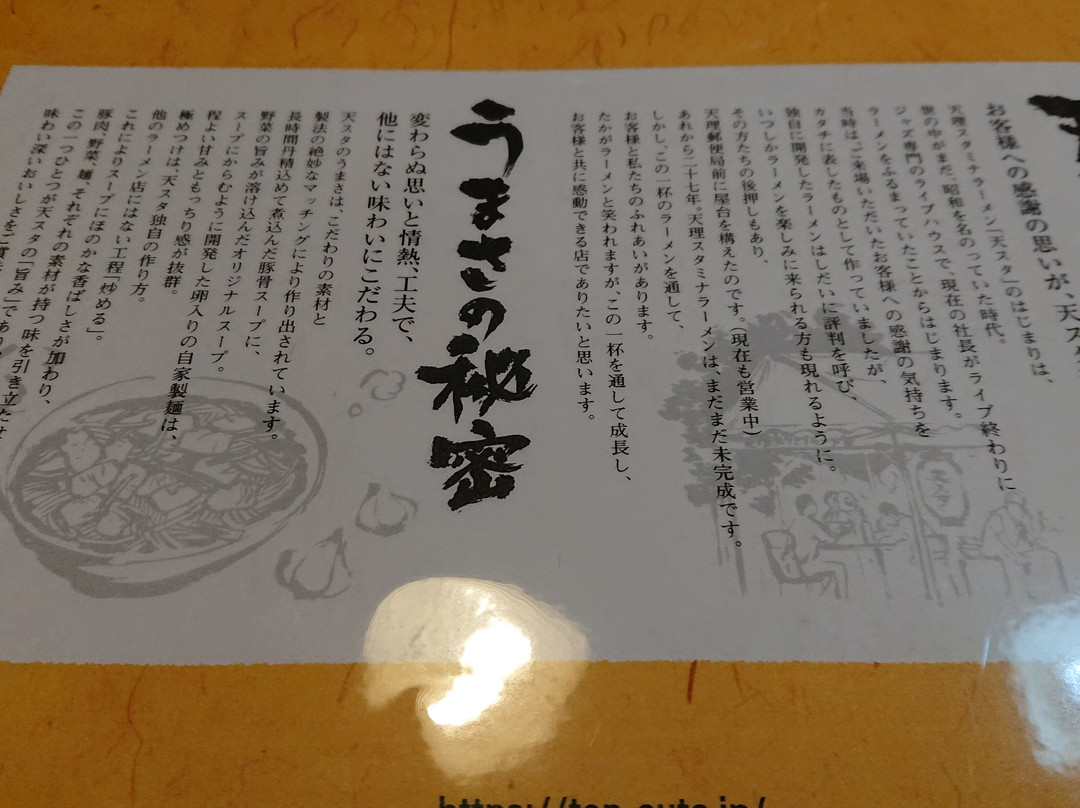 お客様への感謝の思いが、天ス
天理スタミナラーメン「天スタ」のはじまりは、
世の中がまだ、昭和を名のっていた時代。
ジャズ専門のライブハウスで、現在の社長がライブ終わりに
ラーメンをふるまっていたことからはじまります。
当時は、ご来場いただいたお客様への感謝の気持ちを
カタチに表したものとして作っていましたが、
独自に開発したラーメンはしだいに評判を呼び、
いつしかラーメンを楽しみに来られる方も現れるように。
その方たちの後押しもあり、
天理郵便局前に屋台を構えたのです。(現在も営業中)
あれから二十七年。天理スタミナラーメンは、まだまだ未完成です。
しかし、この一杯のラーメンを通して、
お客様と私たちのふれあいがあります。
たかがラーメンと笑われますが、この一杯を通して成長し、
お客様と共に感動できる店でありたいと思います。
うまさの秘密
変わらぬ思いと情熱、工夫で、
他にはない味わいにこだわる。
天スタのうまさは、こだわりの素材と
製法の絶妙なマッチングにより作り出されています。
長時間丹精込めて煮込んだ豚骨スープに、
野菜の旨みが溶け込んだオリジナルスープ。
スープにからむように開発した卵入りの自家製麺は、
程よい甘みともっちり感が抜群。
極めつけは、天スタ独自の作り方。
他のラーメン店にはない工程「炒める」。
これによりスープにほのかな香ばしさが加わり、
豚肉、野菜、麺、それぞれの素材が持つ味を引き立たせ
この一つひとつが天スタの「旨み」であり
味わい深いおいしさをご賞
天スタ